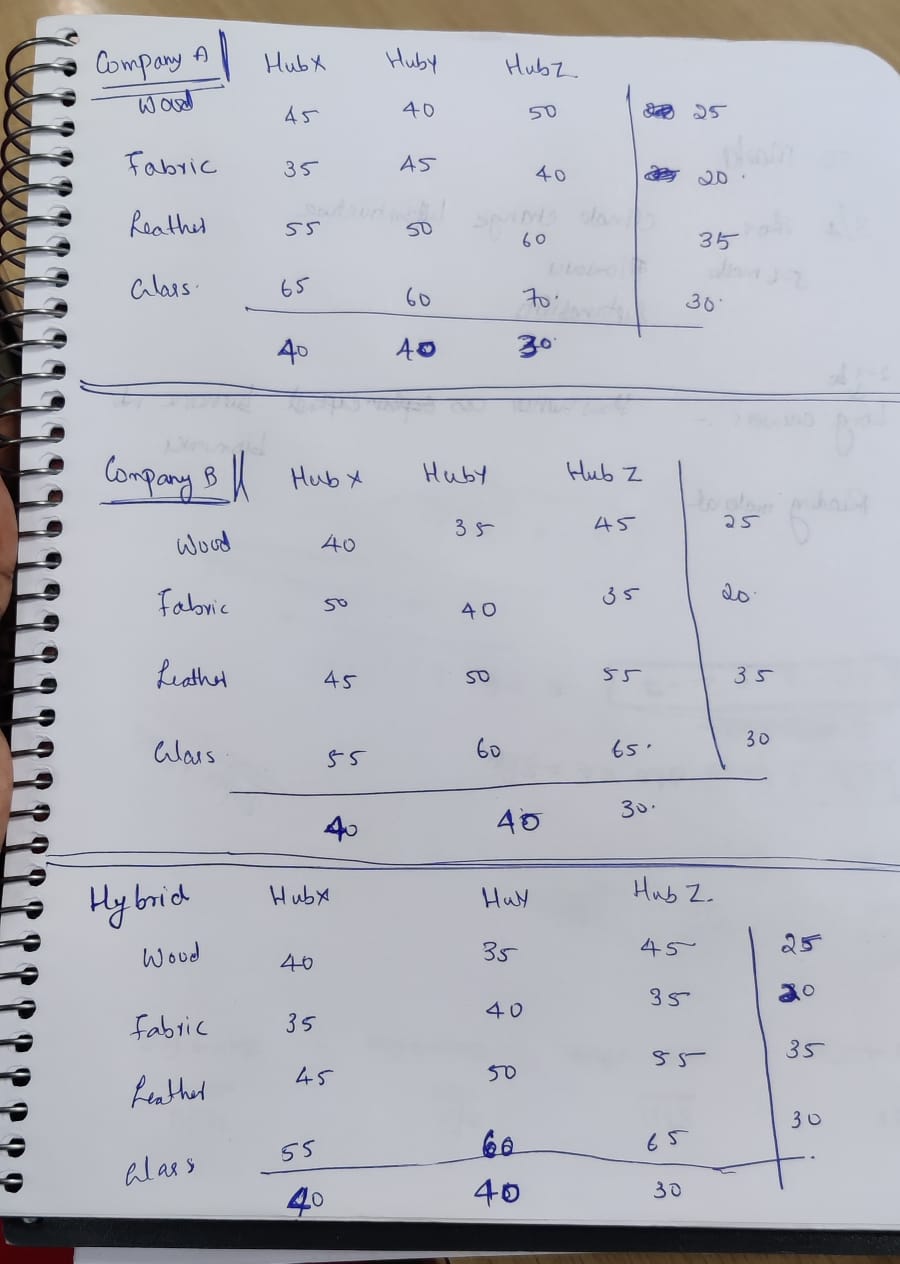 Company A Hub X Hub Y Hub Z
Wood 45 40 50 25
Fabric 35 45 40 20
Leather 55 50 60 35
Glass 65 60 70 30
40 40 30
Company B Hub X Hub Y Hub Z
Wood 40 35 45 25
Fabric 50 40 35 20
Leather 45 50 55 35
Glass 55 60 65 30
40 40 30
Hybrid Hub X HuY Hub Z
Wood 40 35 45 25
Fabric 35 40 35 20
Leather 45 50 55 35
Glass 55 60 65 30
40 40 30